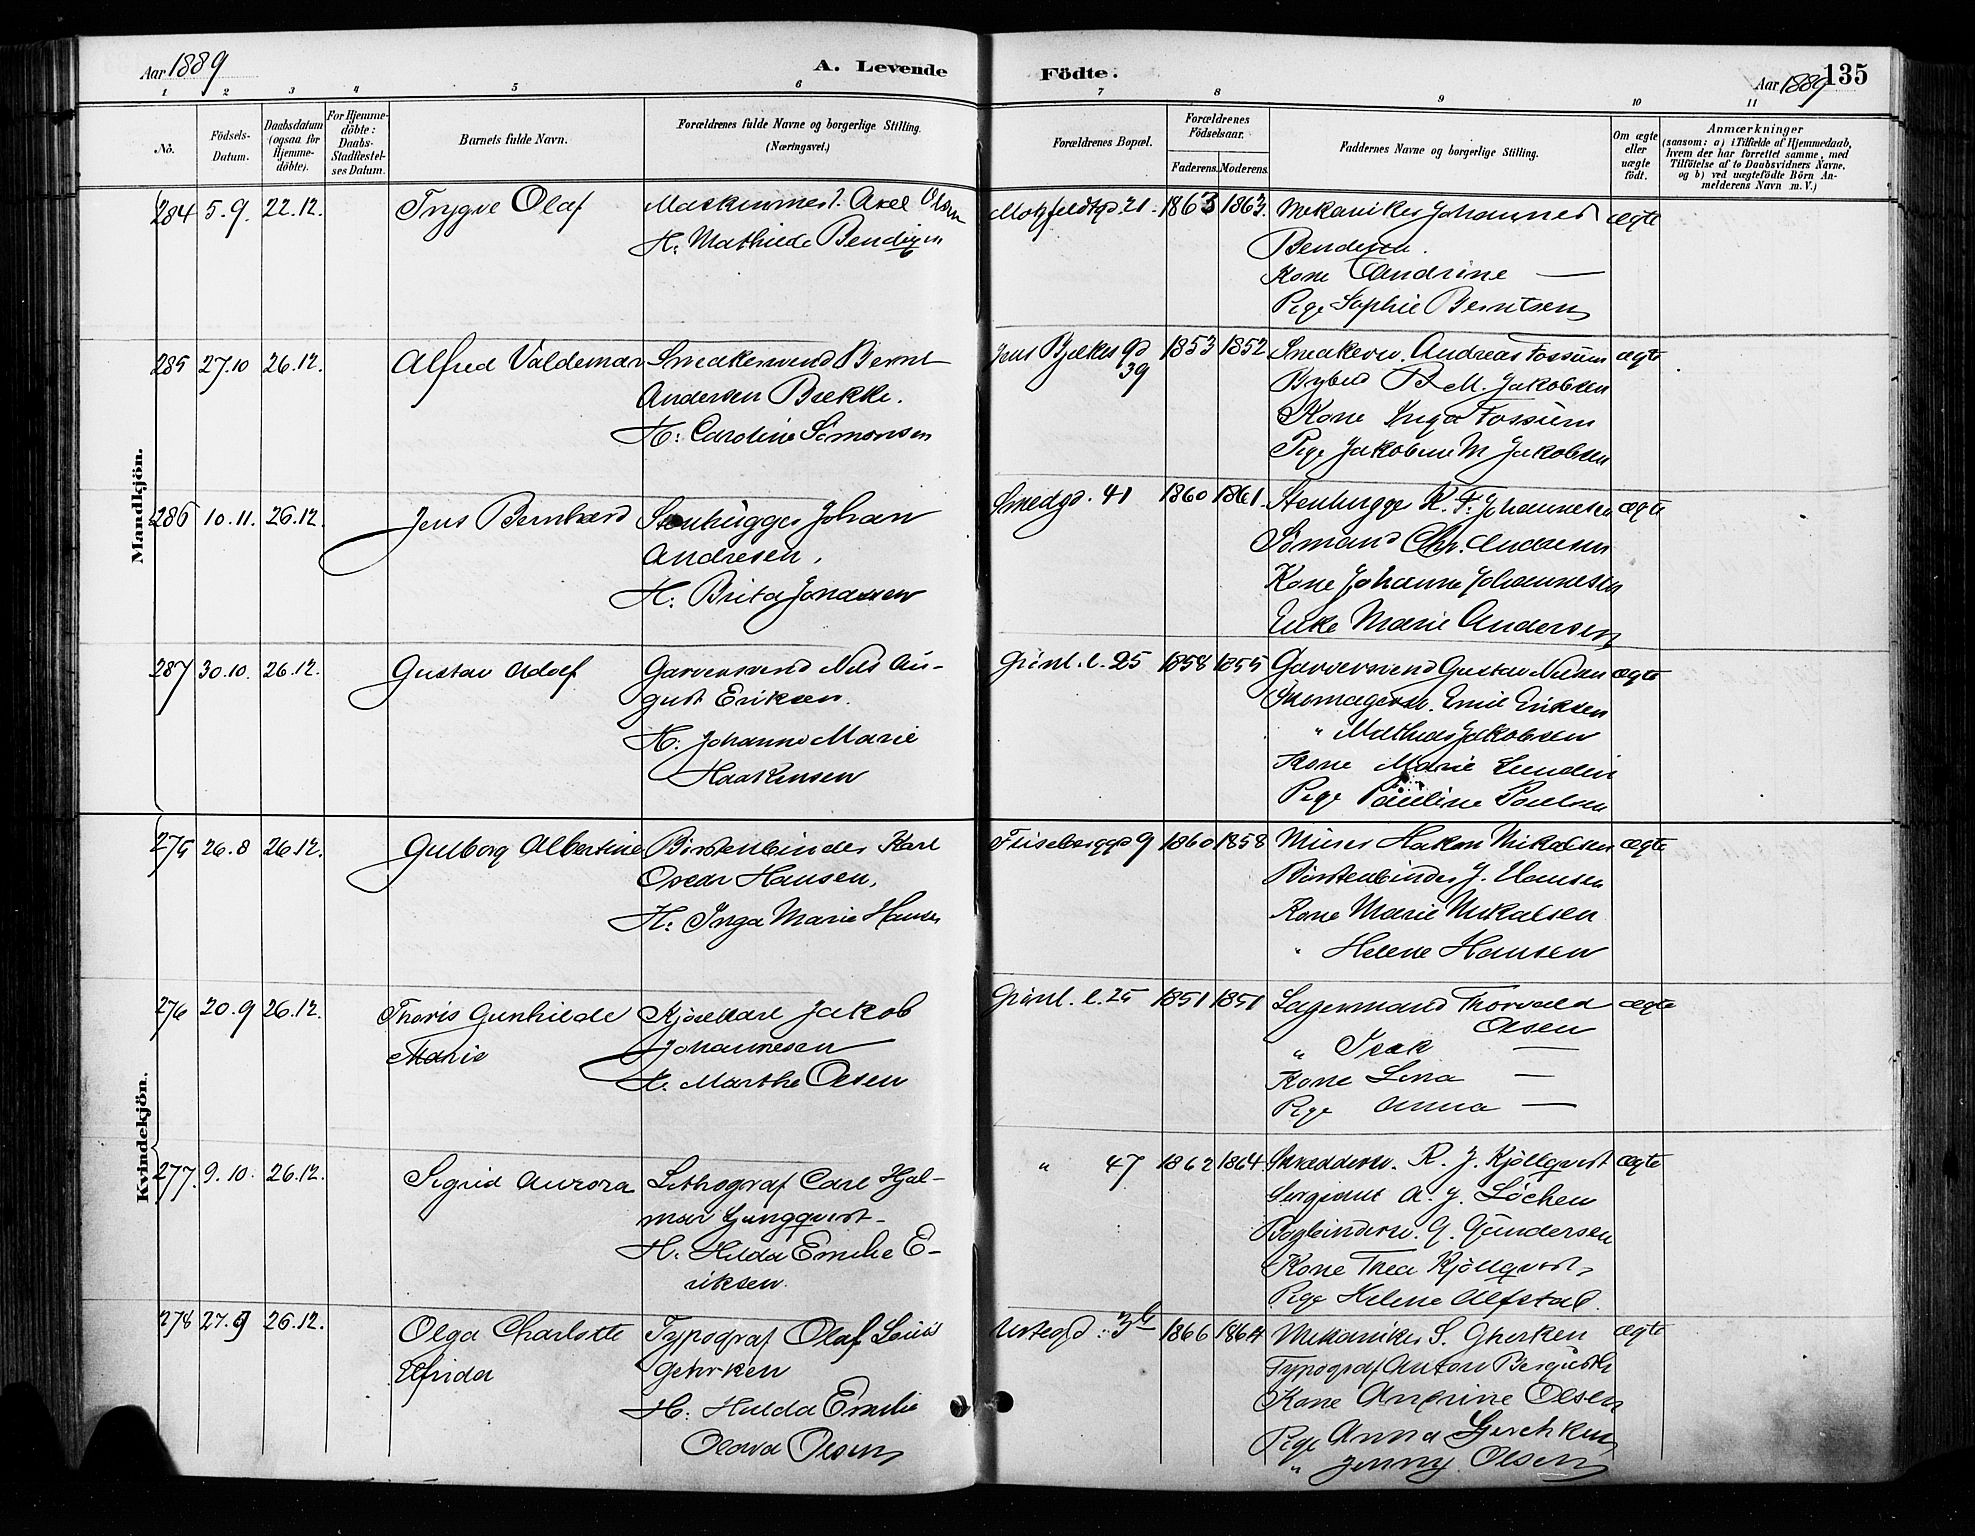 Aar 1889
A. Levende
Födte.
Aar 1889
135
1 2 3 4 5 6 7 8 9 10 11
No.
Födsels-
Datum.
Daabsdatum
(ogsaa for
Hjemme-
döbte).
For Hjemme-
döbte:
Daabs-
Stadfæstel-
ses Datum.
Barnets fulde Navn.
Forældrenes fulde Navne og borgerlige Stilling.
(Næringsvei.)
Forældrenes Bopæl.
Forældrenes
Födselsaar.
Faderens. Moderens.
Faddernes Navne og borgerlige Stilling.
Om ægte
eller
uægte
födt.
Anmærkninger
(saasom: a) i Tilfælde af Hjemmedaab,
hvem der har forrettet samme, med
Tilföielse af to Daabsvidners Navne,
og b) ved uægtefödte Börn An-
melderens Navn m. V.)
Mandkjön.
284 5.9. 22.12. Trygve Olaf
Maskinmest. Axel Olsen
H: Mathilde Bendixen
Motzfeldtgd 21. 1863 1863.
Mekaniker Johannes
Bendixen.
Kone Andrine —
Pige Sophie Berntsen
ægte
285 27.10 26.12. Alfred Valdemar
Smedesvend Bernt
Andersen Bakke.
H: Caroline Simonsen
Jens Bjelkes gd
39
1853 1852
Andreas Fossum
B. M. Jakobsen
Kone Inga Fossum
Pige Jakobine M Jakobsen
ægte
286 10.11. 26.12. Jens Bernhard
Stenhugger Johan
Andresen.
H: Brita Jonassen
Smedgd. 41 1860 1861.
Stenhugger K. F. Johannesen
Sömand Chr. Andresen
Kone Johanne Johannesen
Enke Marie Andersen
ægte
287 30.10. 26.12. Gustav Adolf
Garversvend Nils Au-
gust Eriksen.
H: Johanne Marie
Haakensen
Grönl. l. 25 1858 1855
Garversvend Gustav Nilsen
Skomagersv. Emil Eriksen
" Mathias Jakobsen
Kone Marie Lundin
Pige Pauline Paulsen
ægte
Kvindekjön.
275 26.8 26.12. Gulborg Albertine
Börstenbinder Karl
Oscar Hansen.
H: Inga Marie Hansen
Fliseberggd 9 1860 1858
Murer Hakon Mikalsen
Börstenbinder J. Hansen
Kone Marie Mikalsen
" Helene Hansen
ægte
276 20.9 26.12. Thoris Gunhilde
Marie
Kjörekarl Jakob
Johannesen
H. Marthe Olsen
Grönl. l. 25 1851 1851
Lagermand Thorvald
Olsen
" Isak —
Kone Lina —
Pige Anna —
ægte
277. 9.10. 26.12. Sigrid Aurora
Lithograf Carl Hjal-
mar Ljungqvist
H. Hilda Emilie E-
riksen.
" 47 1862 1864.
Skræddersv. R. J. Kjöllqvist
Sergeant A. J. Löchen
Bogbindersv. G. Gundersen
Kone Thea Kjöllqvist
Pige Helene Alfstal.
ægte
278 27.9 26.12. Olga Charlotte
Elfrida
Typograf Olaf Louis
Geherken
H. Hulda Emilie
Olava Olsen
Urtegd. 3b 1866 1864
Mekaniker S. Gherken
Typograf Anton Bergqvist
Kone Andrine Olsen
Pige Anna Gerchken
" Jenny Olsen
ægte